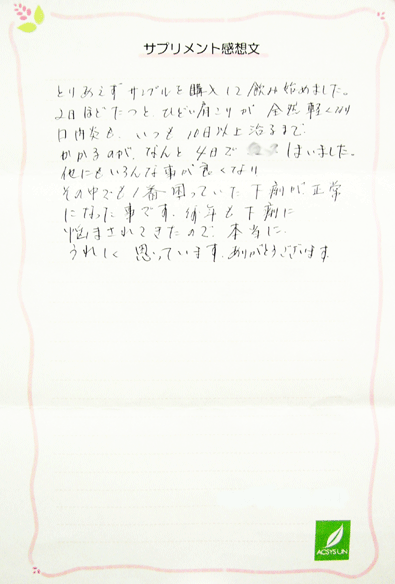 サプリメント感想文
とりあえずサンプルを購入して飲み始めました。
2日ほどたつと、ひどい肩こりが全然軽くなり
口内炎も、いつも10日以上治るまで
かかるのが、なんと4日で はいました。
他にもいろんな事が良くなり
その中でも1番困っていた下痢が正常
になった事です。何年も下痢に
悩まされてきたので、本当に
うれしく思っています。ありがとうございます。
ACSYSUN